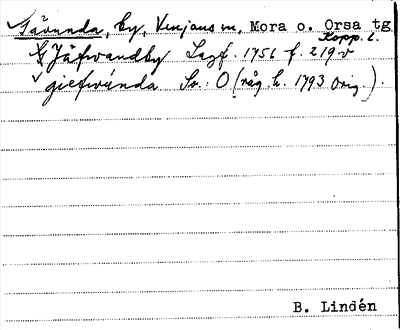 Jävunda, by, Venjans sn, Mora o. Orsa tg
Kopp. l.
Jäfwandby Lagf. 1756 f. 219v
giefwúnda Sv.: O (råg. h. 1793 orig.).
B. Lindén